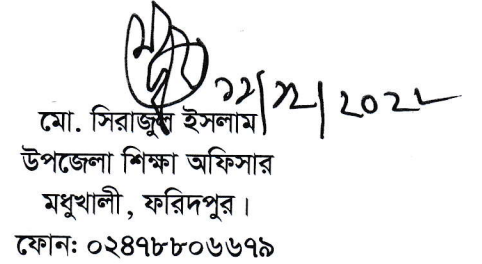 ১২/১২/২০২২
মো. সিরাজুল ইসলাম
উপজেলা শিক্ষা অফিসার
মধুখালী, ফরিদপুর।
ফোন: ০২৪৭৮৮০৬৬৭৯